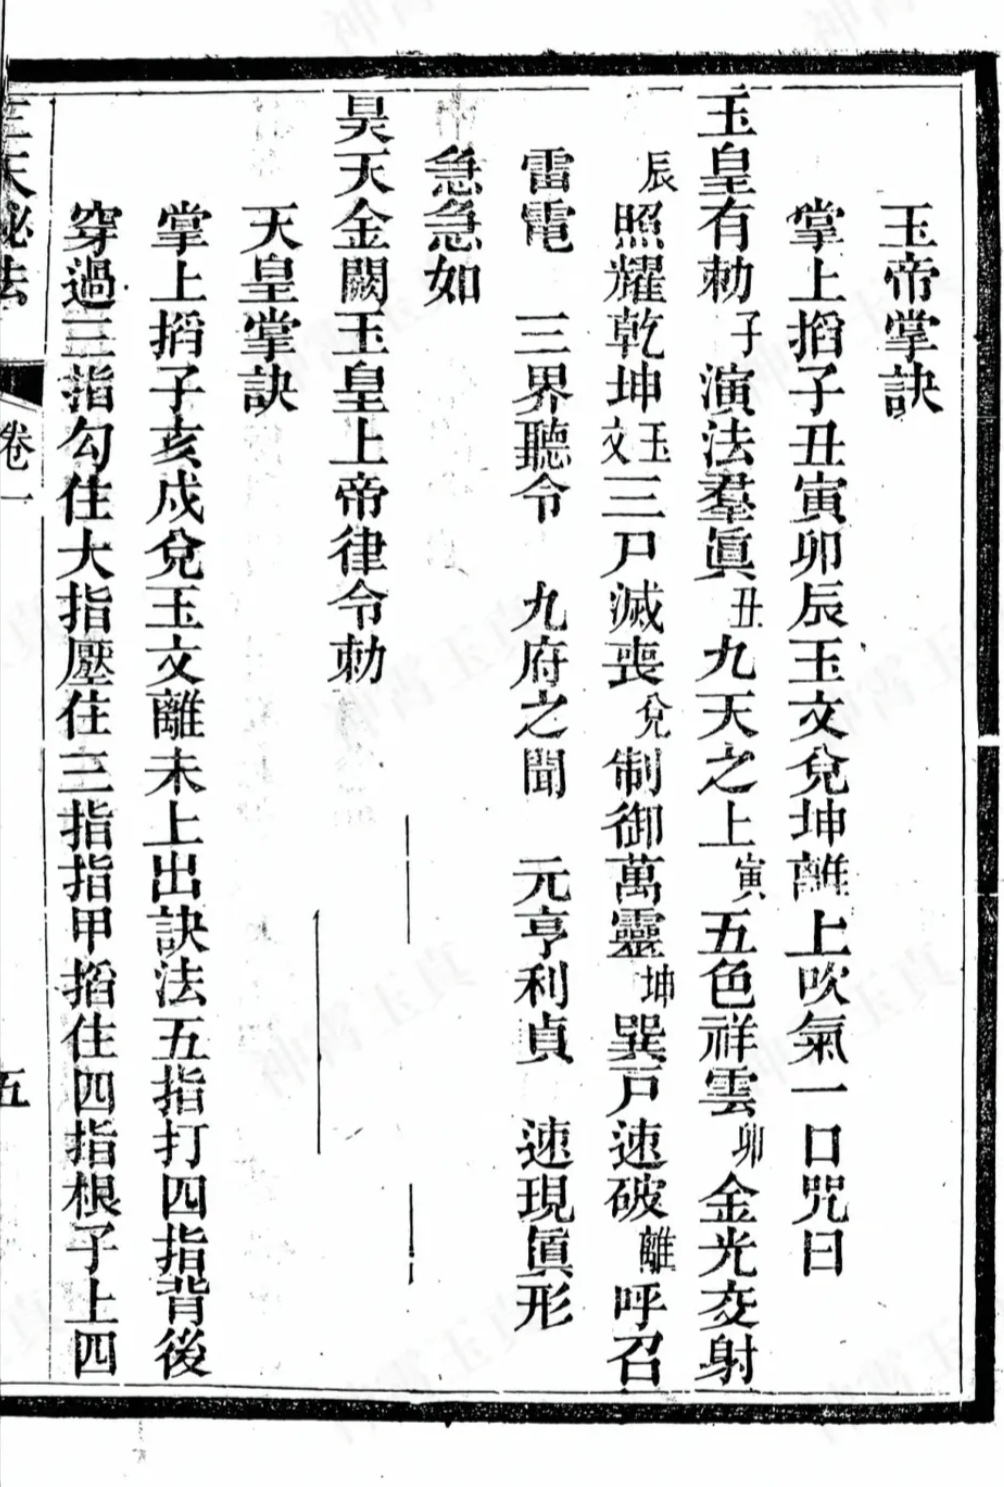 玉帝掌訣
掌上搯子丑寅卯辰玉文兌坤離上吹氣一口咒曰
玉皇有勅子演法羣眞丑九天之上寅五色祥雲卯金光交射
辰照耀乾坤玉文三尸滅喪兌制御萬靈坤巽戸速破離呼召
雷電　三界聽令　九府之聞　元亨利貞　速現眞形
急急如
昊天金闕玉皇上帝律令勅
天皇掌訣
掌上搯子亥戍兌玉文離未上出訣法五指打四指背後
穿過三指勾住大指壓住三指指甲搯住四指根子上四
三天秘法
卷一
五
神霄玉真